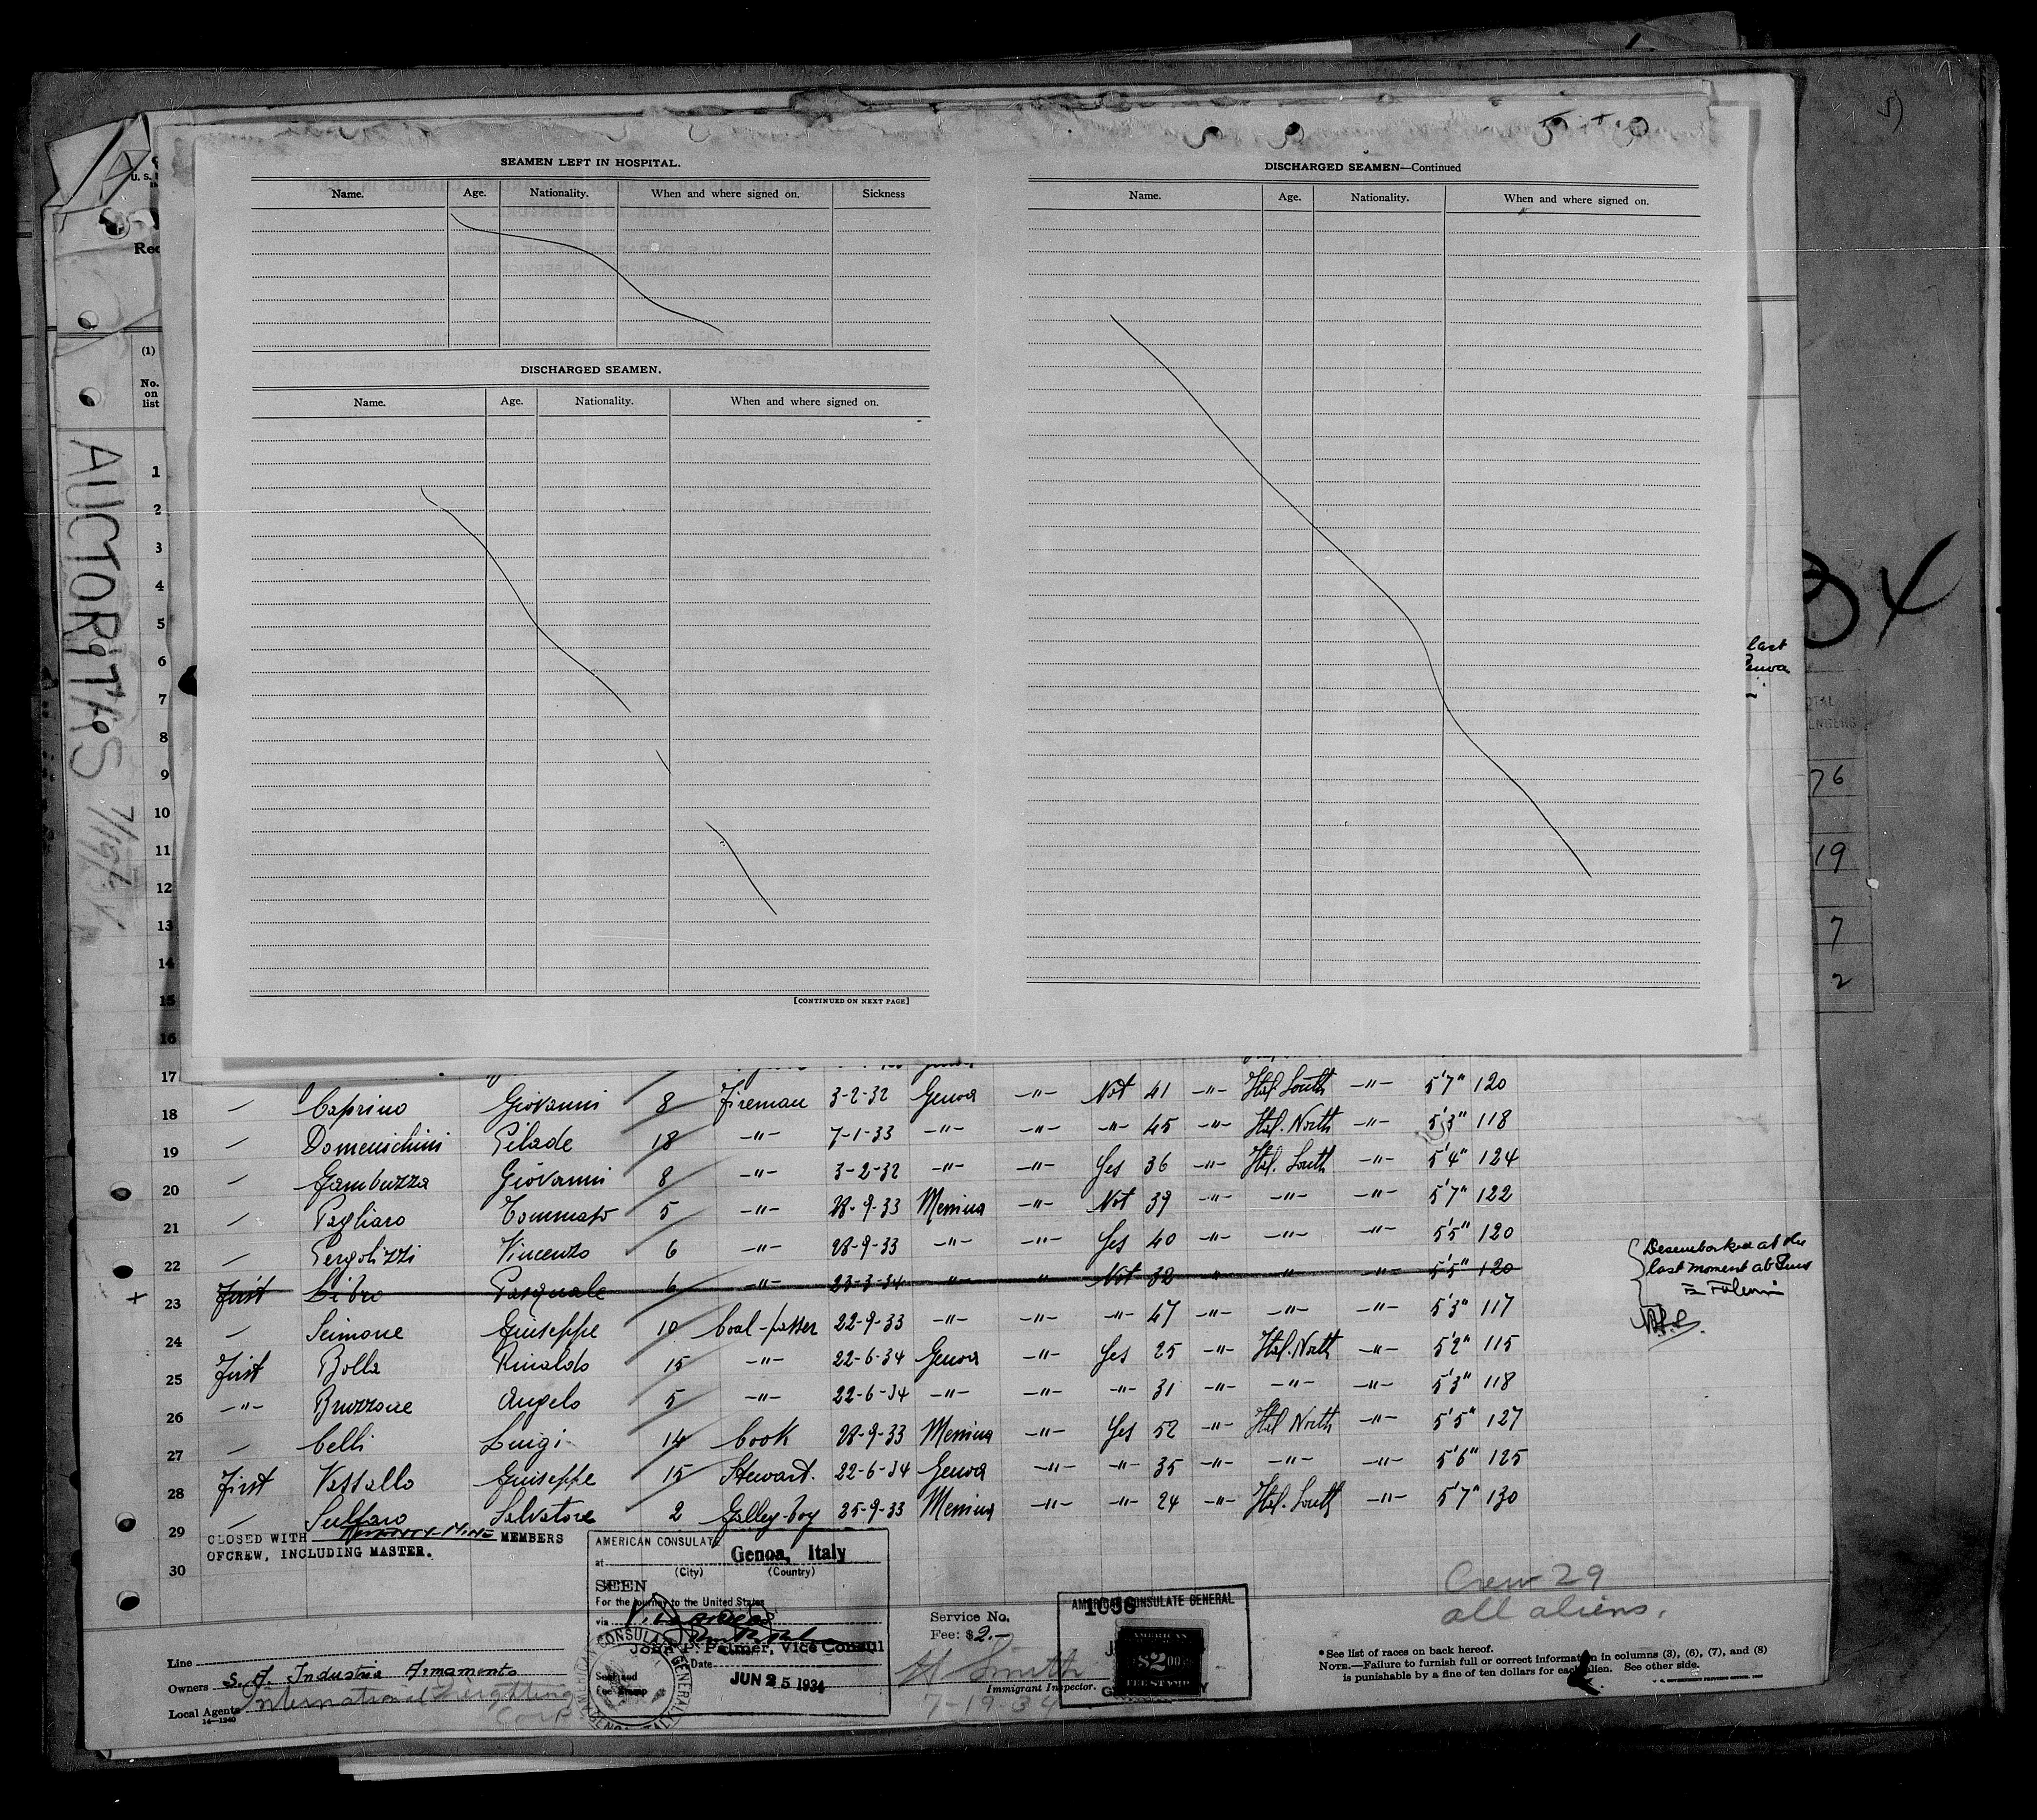 SEAMEN LEFT IN HOSPITAL.
Name. Age. Nationality. When and where signed on. Sickness
DISCHARGED SEAMEN.
Name. Age. Nationality. When and where signed on.
[CONTINUED ON NEXT PAGE]
DISCHARGED SEAMEN—Continued
Name. Age. Nationality. When and where signed on.
U. S.
Rec
(1)
No.
on
list
AUCTORITAS 7/19/34
1
2
3
4
5
6
7
8
9
10
11
12
13
14
15
16
17
34
last
Genoa
76
19
7
2
18 — Caprino Giovanni 8 Fireman 3-2-32 Genoa -"- Not 41 -"- Ital. South -"- 5'7" 120
19 — Domenichini Pilade 18 -"- 7-1-33 -"- -"- -"- 45 -"- Ital. North -"- 5'3" 118
20 — Gambuzza Giovanni 8 -"- 3-2-32 -"- -"- Yes 36 -"- Ital. South -"- 5'4" 124
21 — Pagliaro Tommaso 5 -"- 28-9-33 Messina -"- Not 39 -"- -"- -"- 5'7" 122
22 — Pergolizzi Vincenzo 6 -"- 28-9-33 -"- -"- Yes 40 -"- -"- -"- 5'5" 120
+ 23 First Libro Pasquale 6 -"- 23-3-34 " " Not 32 " " -"- 5'5" 120
{ Desembarked at the
last moment at
24 — Scimone Giuseppe 10 Coal-passer 22-9-33 -"- -"- -"- 47 -"- -"- -"- 5'3" 117
25 First Bolla Rinaldo 15 -"- 22-6-34 Genoa -"- Yes 25 -"- Ital. North -"- 5'2" 115
26 -"- Bruzzone Angelo 5 -"- 22-6-34 -"- -"- -"- 31 -"- -"- -"- 5'3" 118
27 — Celli Luigi 14 Cook 28-9-33 Messina -"- Yes 52 -"- Ital North -"- 5'5" 127
28 First Vassallo Giuseppe 15 Stewart. 22-6-34 Genoa -"- -"- 35 -"- -"- -"- 5'6" 125
29 — Sulfaro Salvatore 2 Galley-boy 25-9-33 Messina -"- -"- 24 -"- Ital. South -"- 5'7" 130
CLOSED WITH TWENTY-NINE MEMBERS
OF CREW, INCLUDING MASTER.
30
AMERICAN CONSULATE
at Genoa, Italy
(City) (Country)
SEEN
For the journey to the United States
via
John P. Palmer, Vice Consul
Date JUN 25 1934
Seal and
Fee Stamp
Service No. 1036
Fee: $2.—
AMERICAN CONSULATE GENERAL
AMERICAN
$2.00
FEE STAMP
H Smith
Immigrant Inspector.
7-19 34
Crew 29
all aliens.
Line
Owners S. A. Industria Armamento
Local Agents International Freighting
Corp
14—1240
*See list of races on back hereof.
NOTE.—Failure to furnish full or correct information in columns (3), (6), (7), and (8)
is punishable by a fine of ten dollars for each alien. See other side.